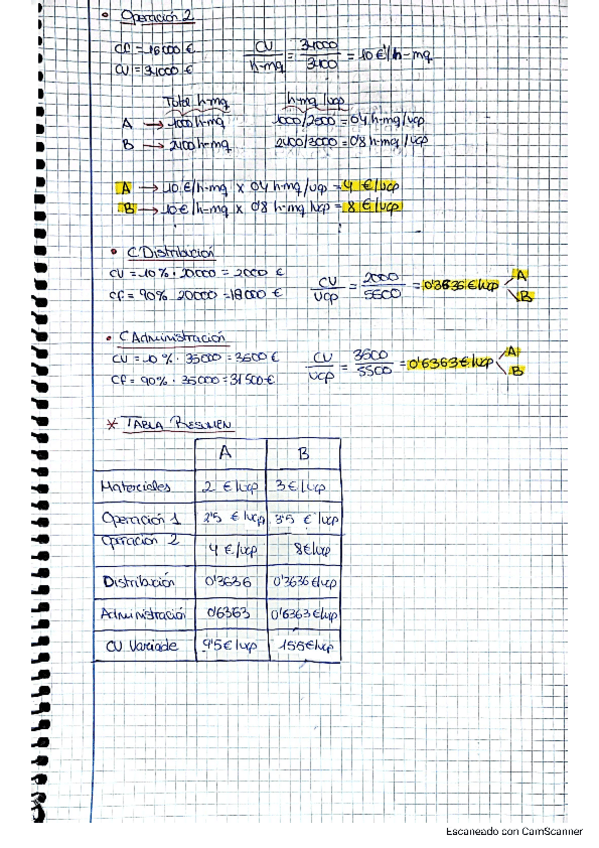 • Operación 2
CF = 16000 €
CU = 34000 €
CU/h-mq = 34000/3400 = 10 €/h-mq
Total h-mq h-mq/ucp
A → 1000 h-mq 1000/2500 = 0'4 h-mq/ucp
B → 2400 h-mq 2400/3000 = 0'8 h-mq/ucp
A → 10 €/h-mq x 0'4 h-mq/ucp = 4 €/ucp
B → 10 €/h-mq x 0'8 h-mq/ucp = 8 €/ucp
• C Distribución
CU = 10% · 20000 = 2000 €
CF = 90% 20000 = 18000 €
CU/UCP = 2000/5500 = 0'3636 €/ucp A B
• C Administración
CU = 10% · 35000 = 3500 €
CF = 90% · 35000 = 31500 €
CU/UCP = 3500/5500 = 0'6363 €/ucp A B
* TABLA RESUMEN
A B
Materiales 2 €/ucp 3 €/ucp
Operación 1 2'5 €/ucp 3'5 €/ucp
Operación 2 4 €/ucp 8 €/ucp
Distribución 0'3636 0'3636 €/ucp
Administración 0'6363 0'6363 €/ucp
CU Variable 9'5 €/ucp 15'5 €/ucp
Escaneado con CamScanner